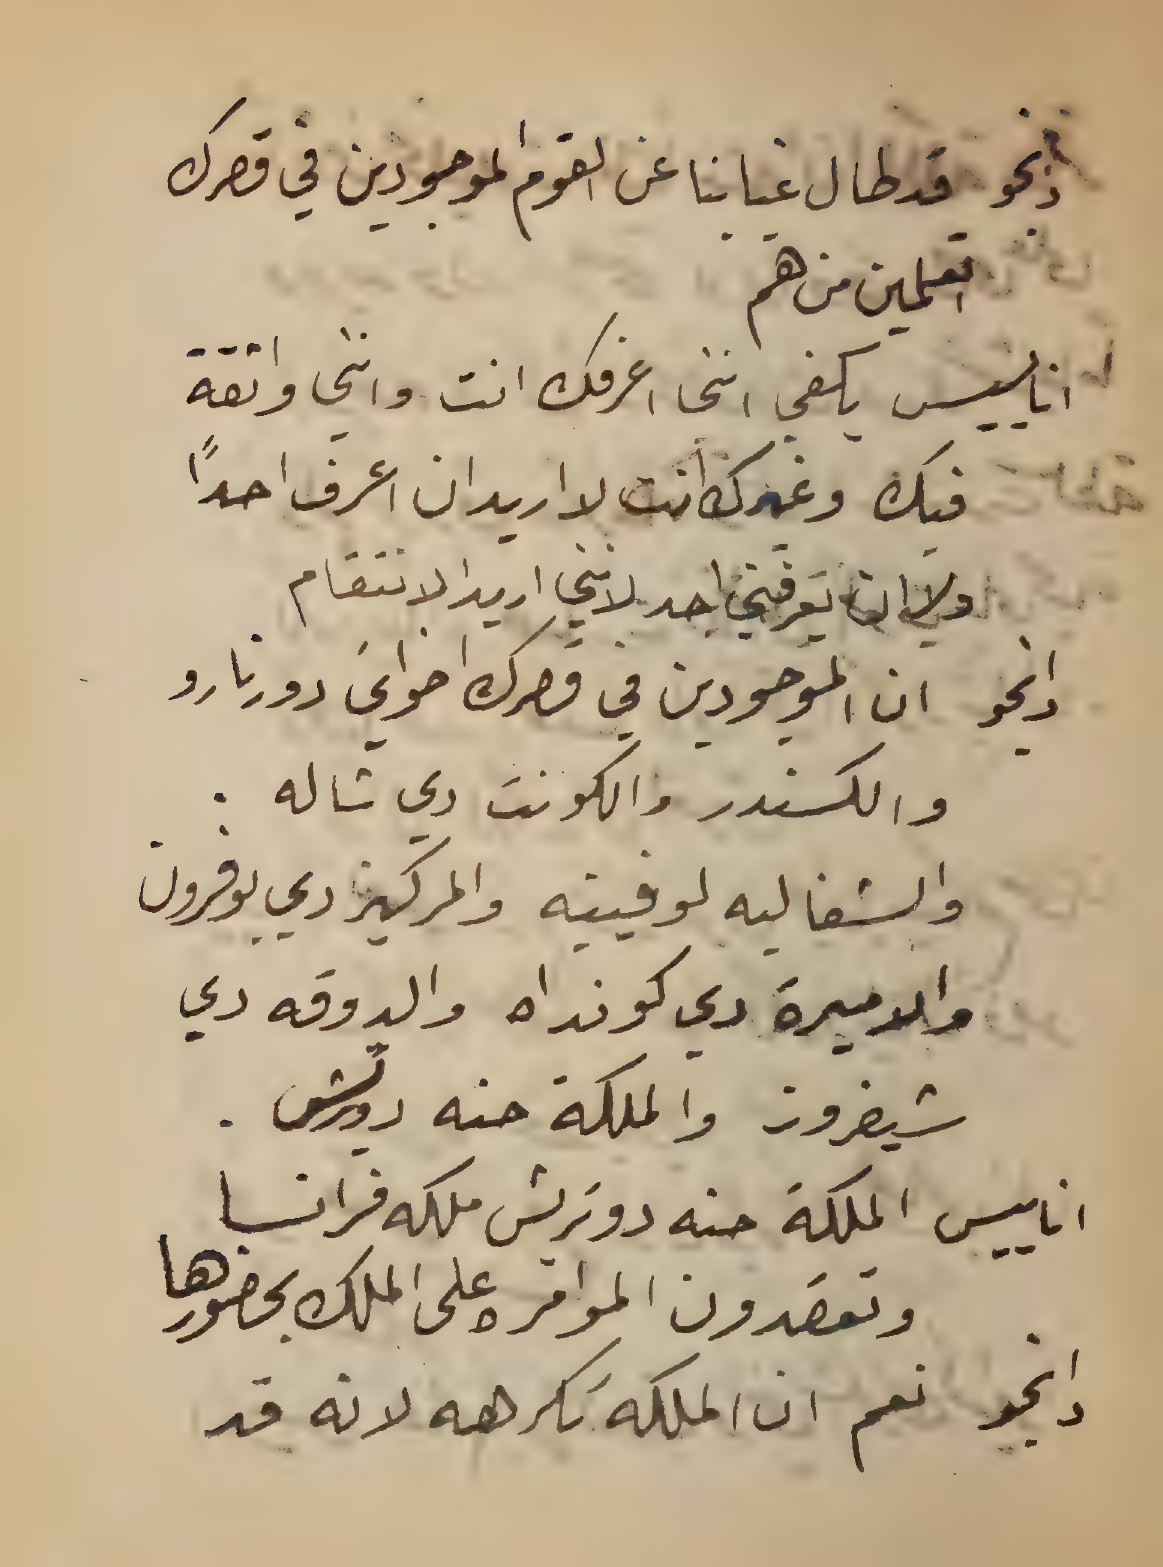 دانجو قد طال غيابنا عن القوم الموجودين في قصرك
اتعلمين من هم
اناييس يكفي انني اعرفك انت وانني واثقة
فيك وغيرك انت لا اريد ان اعرف احدًا
ولا ان يعرفني احد لانني اريد الانتقام
دانجو ان الموجودين في قصرك اخواي دورنارو
والكسندر والكونت دي شاله .
والشفاليه لوفينيه والمركيز دي بوفرون
والاميرة دي كونداه والدوقه دي
شيفروز والملكة حنه دوتريش .
اناييس الملكة حنه دوتريش ملكه فرانسا
وتعقدون الموامره على الملك بحضورها
دانجو نعم ان الملكه تكرهه لانه قد